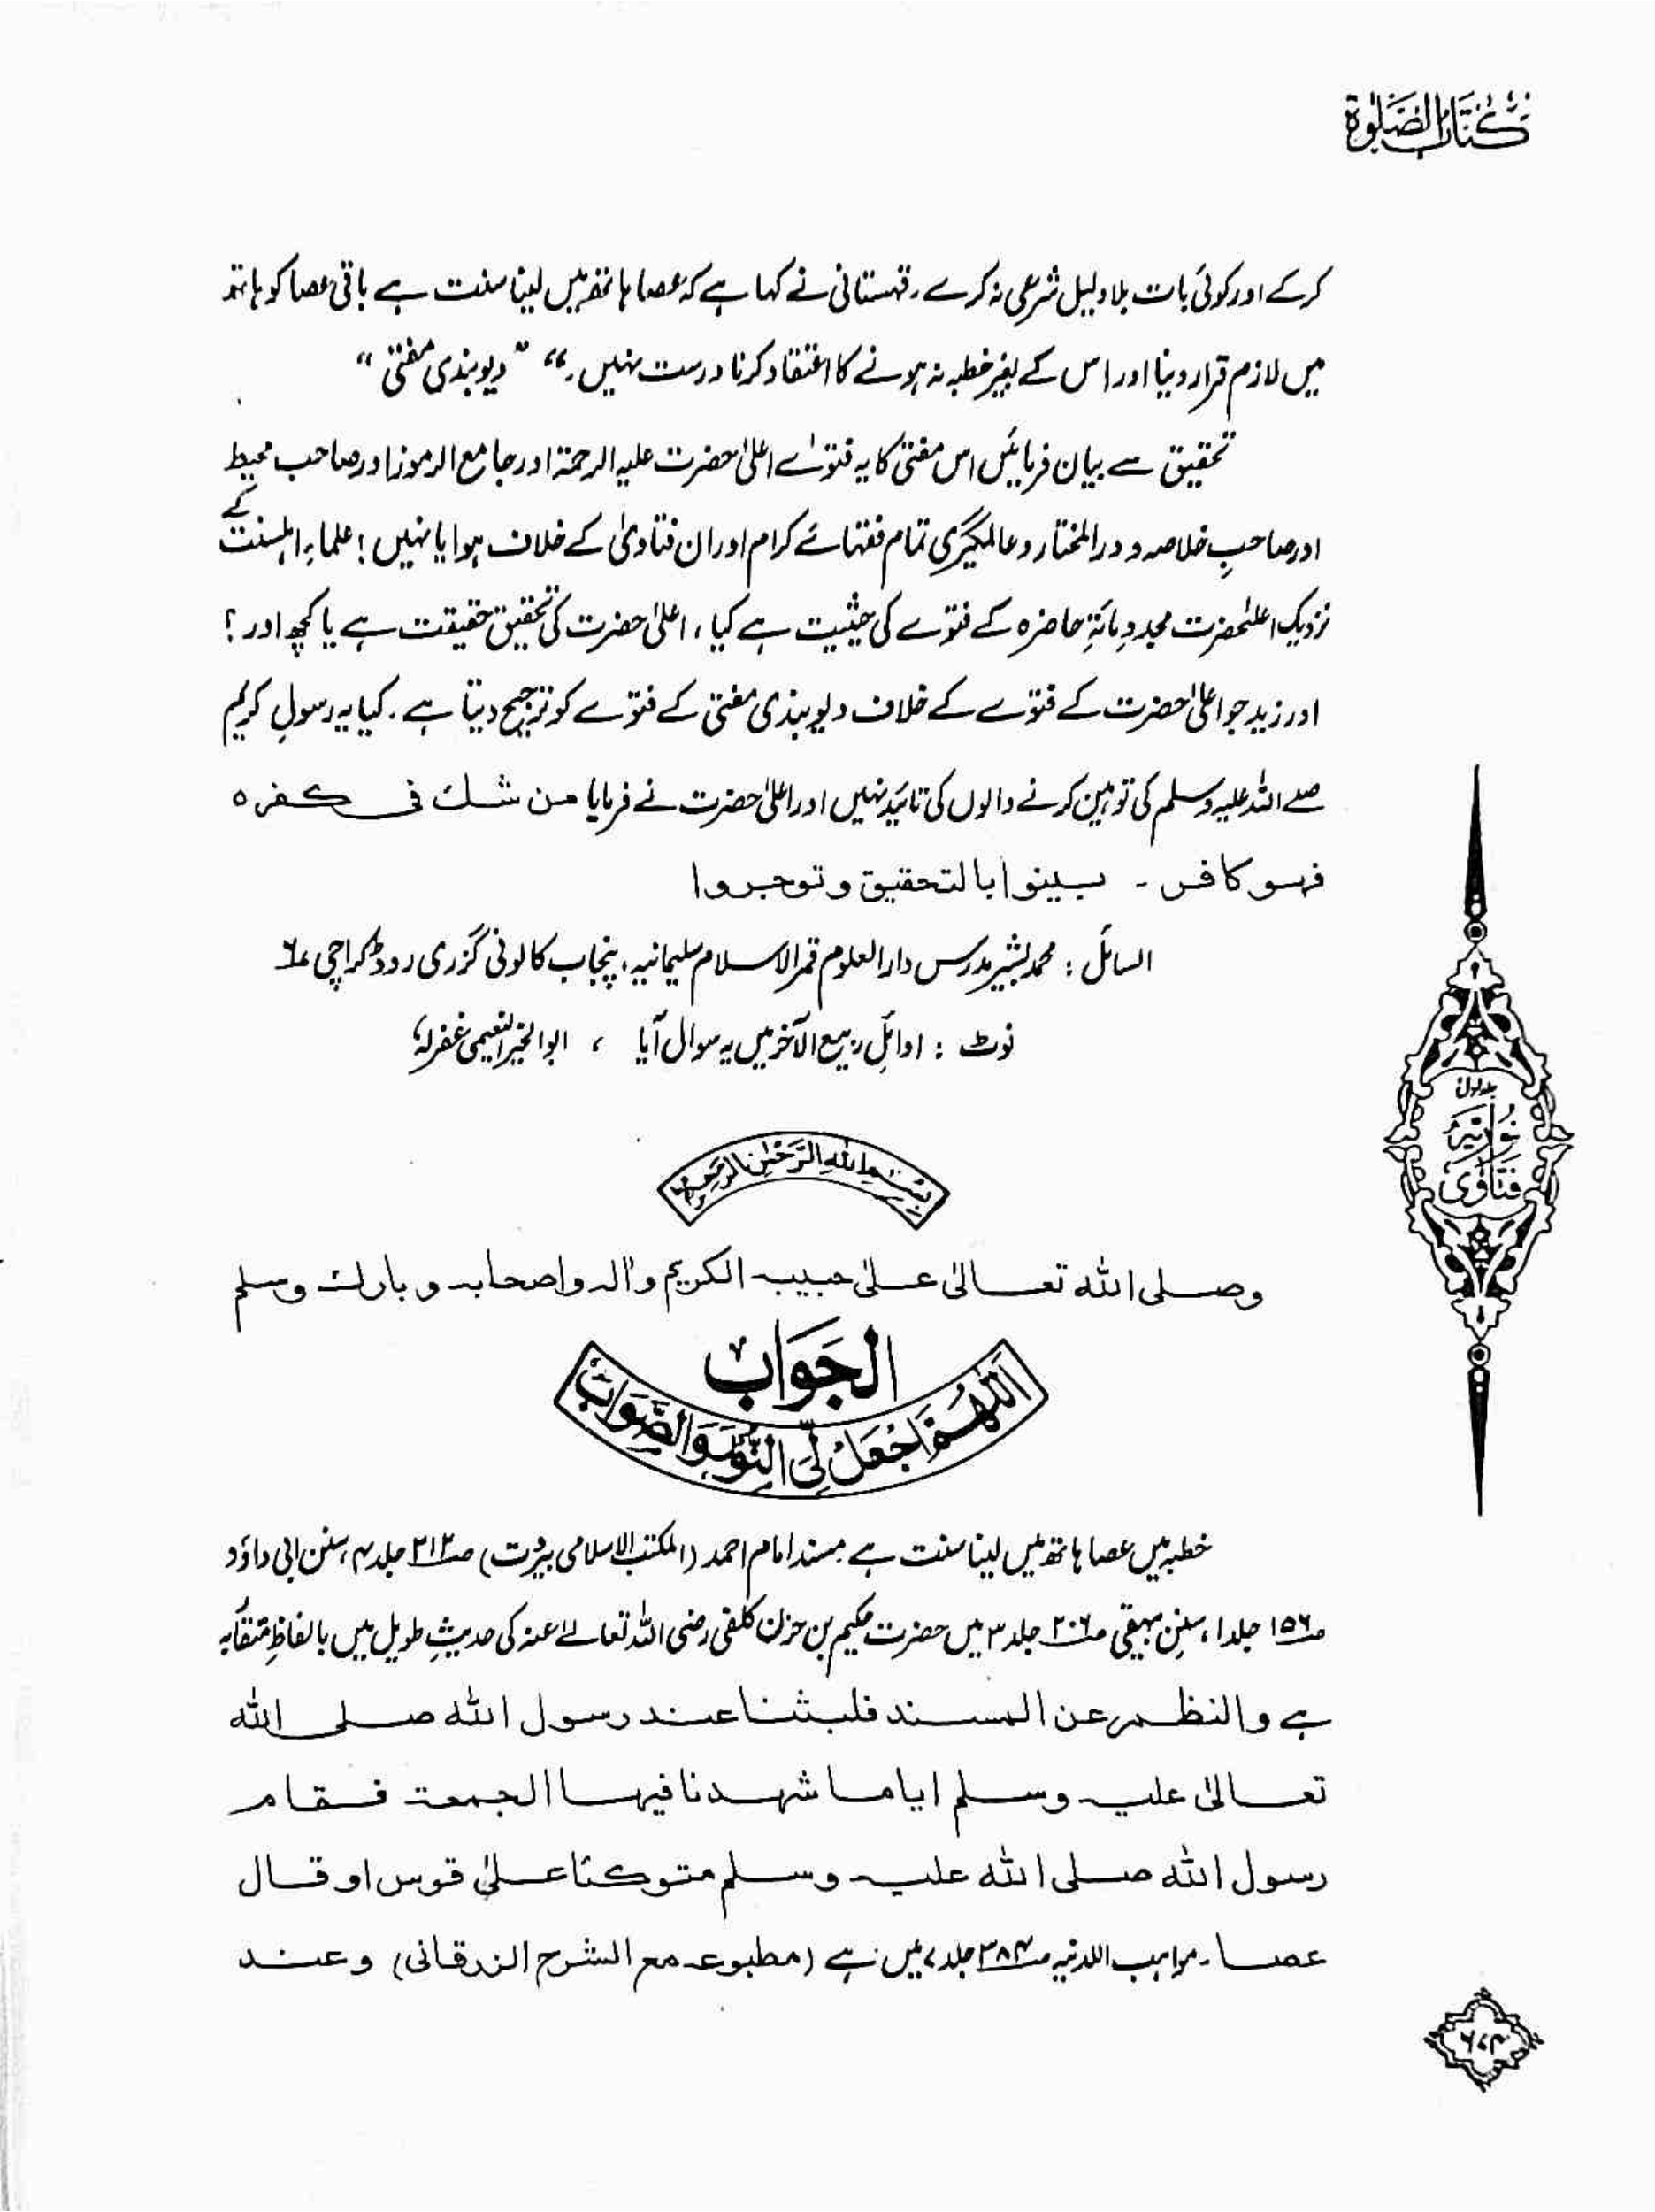 كتاب الصلوة
کرکے اور کوئی بات بلا دلیل شرعی نہ کرے۔ قہستانی نے کہا ہے کہ عصا ہاتھ میں لینا سنت ہے باقی عصا کو ہاتھ
میں لازم قرار دینا اور اس کے بغیر خطبہ نہ ہونے کا اعتقاد کرنا درست نہیں۔“ ”دیوبندی مفتی“
تحقیق سے بیان فرمائیں اس مفتی کا یہ فتوٰے اعلیٰ حضرت علیہ الرحمۃ اور جامع الرموز اور صاحب محیط
اور صاحبِ خلاصہ و در المختار و عالمگیری تمام فقہائے کرام اور ان فتاویٰ کے خلاف ہوا یا نہیں! علماءِ اہلسنت کے
نزدیک اعلیٰحضرت مجددِ مائۃِ حاضرہ کے فتوے کی حیثیت ہے کیا، اعلیٰ حضرت کی تحقیق حقیقت ہے یا کچھ اور؟
اور زید جو اعلیٰ حضرت کے فتوے کے خلاف دیوبندی مفتی کے فتوے کو ترجیح دیتا ہے۔ کیا یہ رسولِ کریم
صلے اللہ علیہ وسلم کی توہین کرنے والوں کی تائید نہیں اور اعلیٰ حضرت نے فرمایا من شك فی كفره
فهو كافر ۔ بينوا بالتحقيق و توجروا
السائل : محمد بشیر مدرس دار العلوم قمر الاسلام سلیمانیہ، پنجاب کالونی گزری روڈ کراچی ۶
نوٹ : اوائلِ ربیع الآخر میں یہ سوال آیا ، ابو الخیر النعیمی غفرلہٗ
بسم الله الرحمن الرحيم
وصلى الله تعالىٰ علىٰ حبيبه الكريم و آله واصحابه و بارك وسلم
الجَوَابُ
اَللّٰهُمَّ اجْعَلْ لِّیَ النُّوْرَ وَالصَّوَابَ
خطبہ میں عصا ہاتھ میں لینا سنت ہے مسند امام احمد (المکتب الاسلامی بیروت) صـ۲۱۲ جلد ۴، سنن ابی داؤد
صـ۱۵۶ جلد ۱، سننِ بیہقی صـ۲۰۶ جلد ۳ میں حضرت حکیم بن حزن کلفی رضی اللہ تعالےٰ عنہ کی حدیثِ طویل میں بالفاظِ متقاربہ
ہے والنظم عن المسند فلبثنا عند رسول الله صلى الله
تعالىٰ عليه وسلم اياما شهدنا فيها الجمعة فقام
رسول الله صلى الله عليه وسلم متوكئا علىٰ قوس او قال
عصا ۔ مواہب اللدنیہ صـ۳۸۴ جلد ۷ میں ہے (مطبوعہ مع الشرح الزرقانی) و عند
جلد اول
نوریہ
فتاوی
۶۷۴